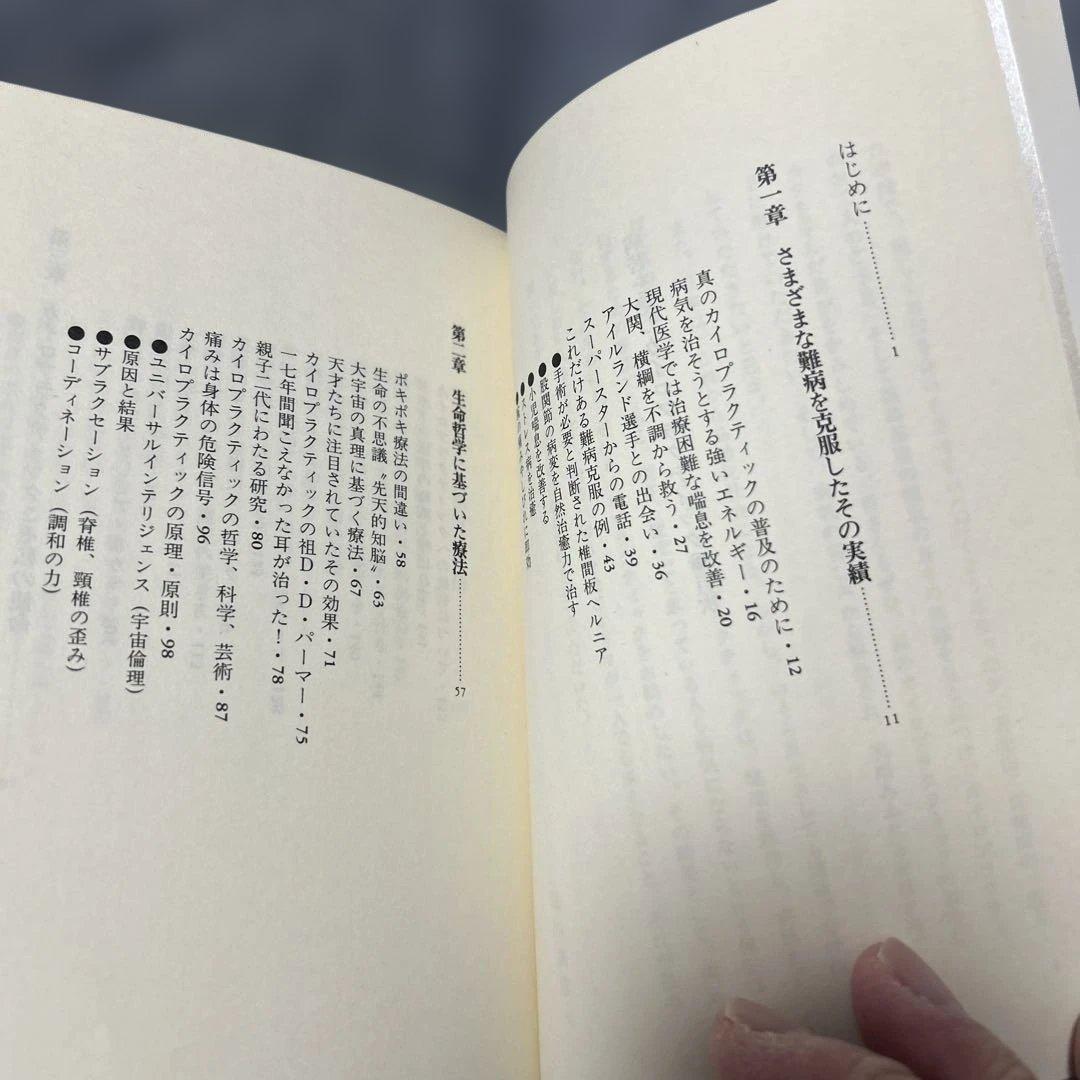 はじめに……………………1
第一章　さまざまな難病を克服したその実績……………………11
真のカイロプラクティックの普及のために・12
病気を治そうとする強いエネルギー・16
現代医学では治療困難な喘息を改善・20
大関、横綱を不調から救う・27
アイルランド選手との出会い・36
スーパースターからの電話・39
これだけある難病克服の例・43
●手術が必要と判断された椎間板ヘルニア
●股関節の病変を自然治癒力で治す
●小児喘息を改善する
●ストレス病を治癒
第二章　生命哲学に基づいた療法……………………57
ボキボキ療法の間違い・58
生命の不思議〝先天的知脳〟・63
大宇宙の真理に基づく療法・67
天才たちに注目されていたその効果・71
カイロプラクティックの祖D・D・パーマー・75
一七年間聞こえなかった耳が治った！・78
親子二代にわたる研究・80
カイロプラクティックの哲学、科学、芸術・87
痛みは身体の危険信号・96
カイロプラクティックの原理・原則・98
●ユニバーサルインテリジェンス（宇宙倫理）
●原因と結果
●サブラクセーション（脊椎、頸椎の歪み）
●コーディネーション（調和の力）